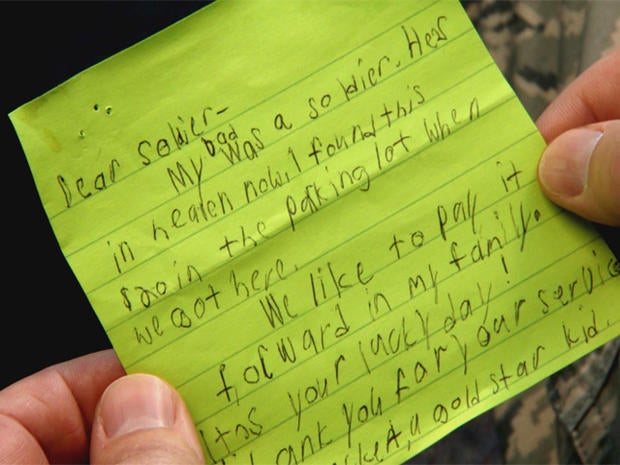 Dear soldier-
My Dad was a soldier. Hes
in heaven now. I found this
$20 in the parking lot when
we got here.
We like to pay it
forward in my family.
Its your lucky day!
Thank you for your service
a gold star kid.